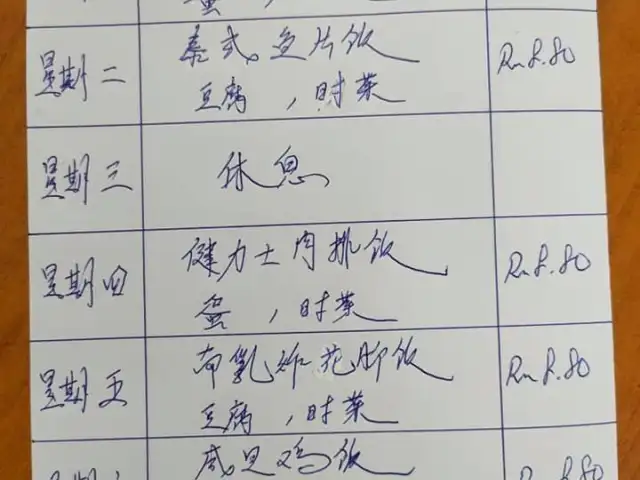 蛋，时
星期二
泰式鱼片饭
豆腐，时菜
Rm 8.80
星期三
休息
星期四
健力士肉排饭
蛋，时菜
Rm 8.80
星期五
南乳炸花脚饭
豆腐，时菜
Rm 8.80
咸旦鸡饭
Rm 8.80